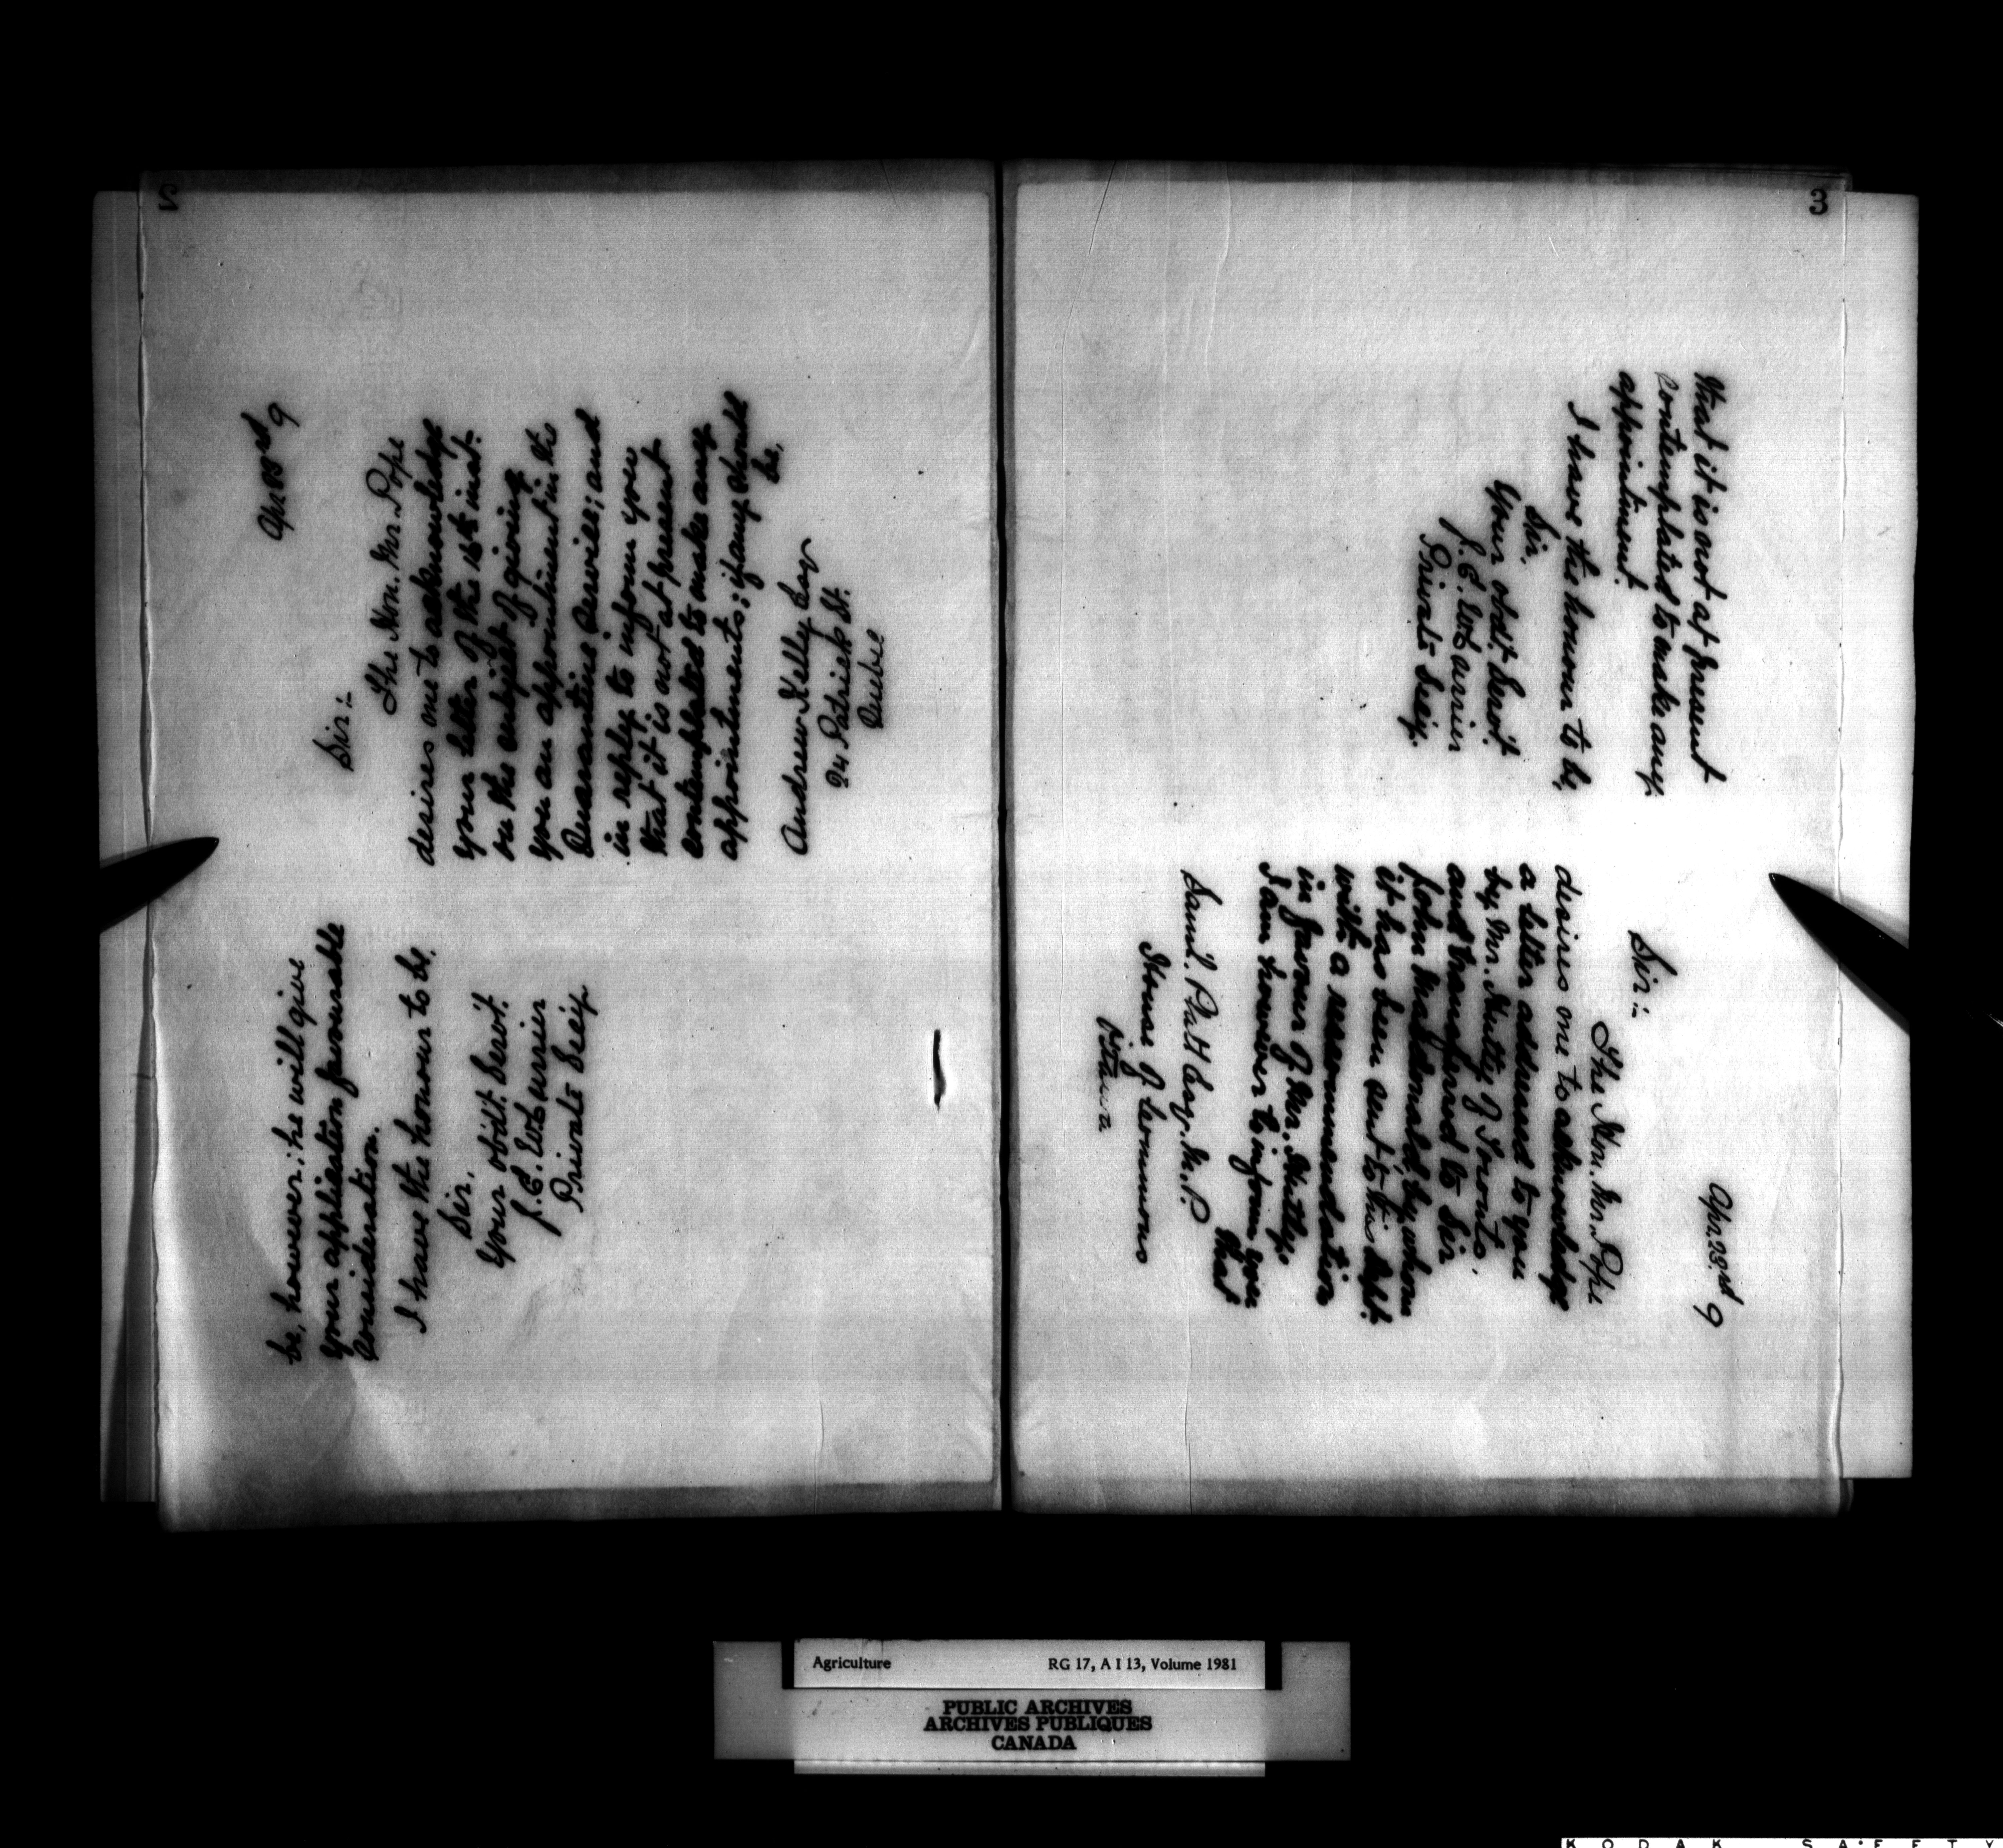 Apr 23rd 9
Sir:-
The Hon. Mr. Pope
desires me to acknowledge
your letter of the 18th inst.
on the subject of giving
you an appointment in the
Quarantine service; and
in reply to inform you
that it is not at present
contemplated to make any
appointments; if any should
be,
Andrew Kelly Esq
24 Patrick St.
Quebec
be, however, he will give
your application favourable
consideration.
I have the honour to be,
Sir,
Your obdt. Servt.
J. E.
Private Secy.
3
Apr 23rd 9
Sir:-
The Hon. Mr. Pope
desires me to acknowledge
a letter addressed to you
by Mr. Hutty of Toronto,
and transferred to Sir
John Macdonald, by whom
it has been sent to this Dept.
with a recommendation
in favour of Mr. Hutty.
I am however to inform you
that
Saml. Platt Esq. M.P.
House of Commons
Ottawa
that it is not at present
contemplated to make any
appointment.
I have the honour to be,
Sir.
Your obdt. Servt
J. E.
Private Secy.
Agriculture RG 17, A I 13, Volume 1981
PUBLIC ARCHIVES
ARCHIVES PUBLIQUES
CANADA
KODAK SAFETY